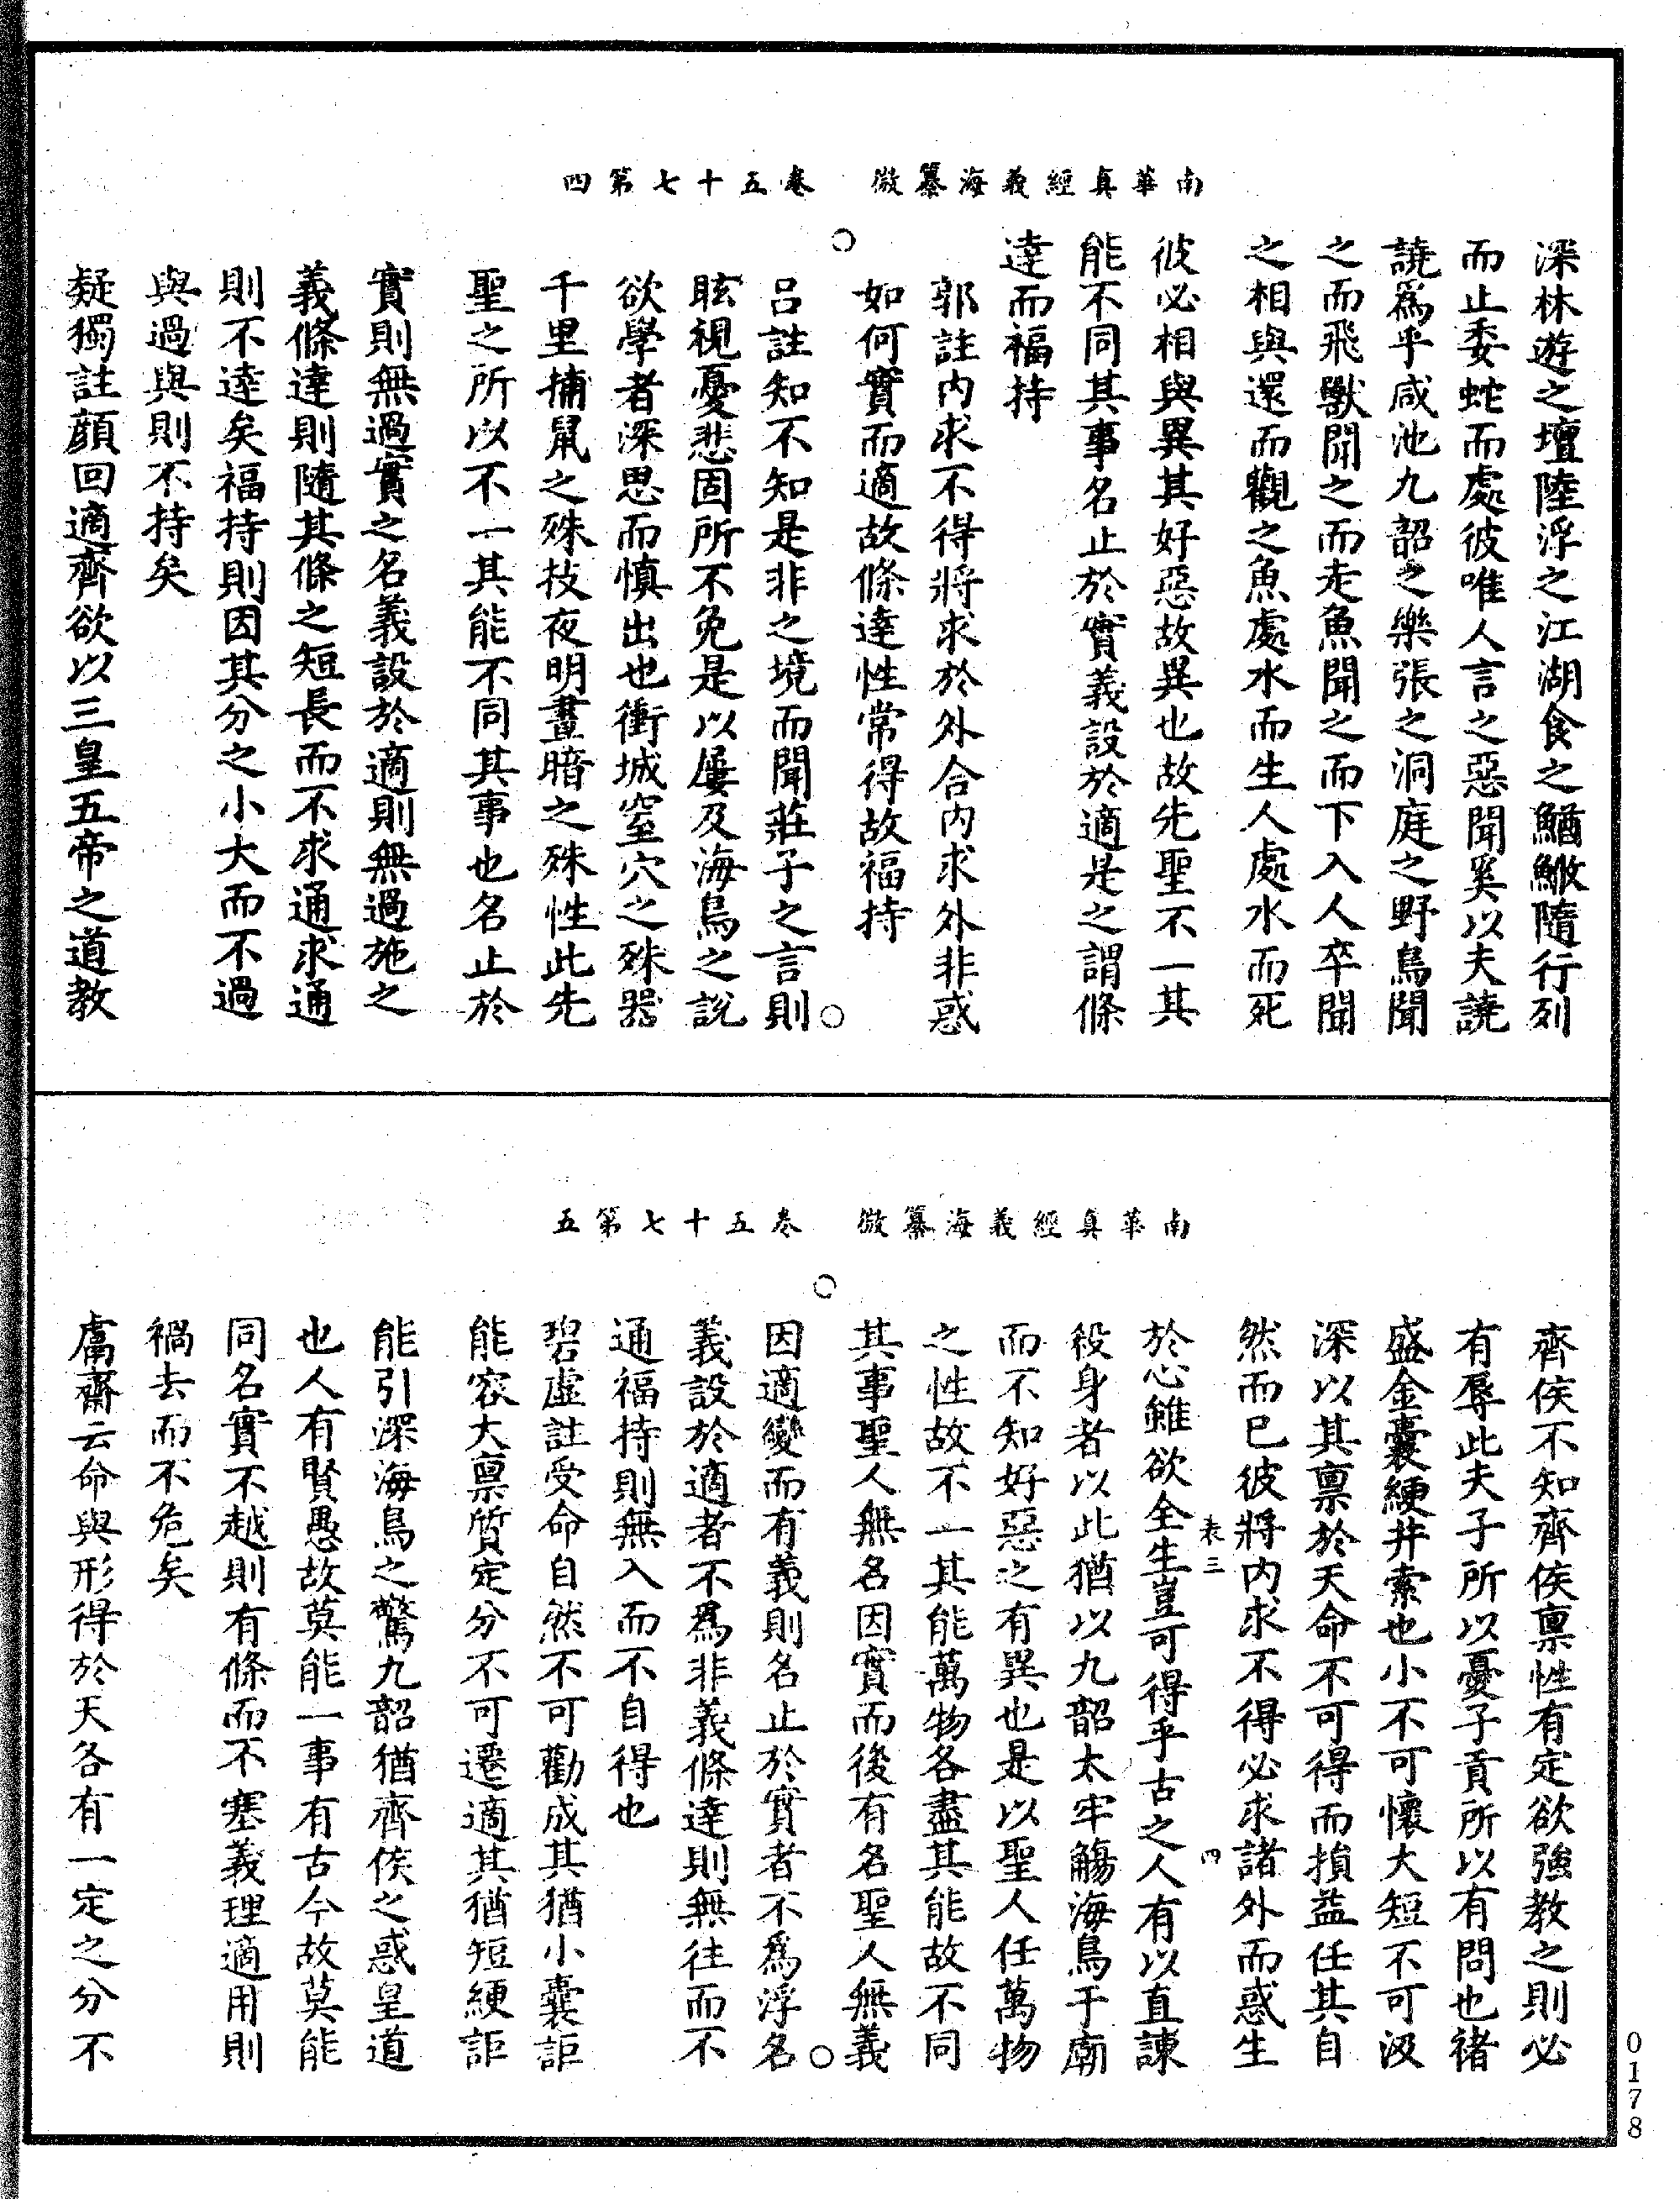 南華真經義海纂微　卷五十七第四
深林遊之壇陸浮之江湖食之鰌鰷隨行列
而止委蛇而處彼唯人言之惡聞奚以夫譊
譊爲乎咸池九韶之樂張之洞庭之野鳥聞
之而飛獸聞之而走魚聞之而下入人卒聞
之相與還而觀之魚處水而生人處水而死
彼必相與異其好惡故異也故先聖不一其
能不同其事名止於實義設於適是之謂條
達而福持
郭註內求不得將求於外合內求外非惑
如何實而適故條達性常得故福持
呂註知不知是非之境而聞莊子之言則
眩視憂悲固所不免是以屢及海鳥之說
欲學者深思而慎出也衝城窒穴之殊器
千里捕鼠之殊技夜明晝暗之殊性此先
聖之所以不一其能不同其事也名止於
實則無過實之名義設於適則無過施之
義條達則隨其條之短長而不求通求通
則不達矣福持則因其分之小大而不過
與過與則不持矣
疑獨註顏回適齊欲以三皇五帝之道教
南華真經義海纂微　卷五十七第五
齊侯不知齊侯禀性有定欲強教之則必
有辱此夫子所以憂子貢所以有問也褚
盛金囊綆井索也小不可懷大短不可汲
深以其禀於天命不可得而損益任其自
然而已彼將內求不得必求諸外而惑生
於心雖欲全生豈可得乎古之人有以直諫
表三　四
役身者以此猶以九韶太牢觴海鳥于廟
而不知好惡之有異也是以聖人任萬物
之性故不一其能萬物各盡其能故不同
其事聖人無名因實而後有名聖人無義
因適變而有義則名止於實者不爲浮名
義設於適者不爲非義條達則無往而不
通福持則無入而不自得也
碧虛註受命自然不可勸成其猶小囊詎
能容大禀質定分不可遷適其猶短綆詎
能引深海鳥之驚九韶猶齊侯之惑皇道
也人有賢愚故莫能一事有古今故莫能
同名實不越則有條而不塞義理適用則
禍去而不危矣
鬳齋云命與形得於天各有一定之分不
0178